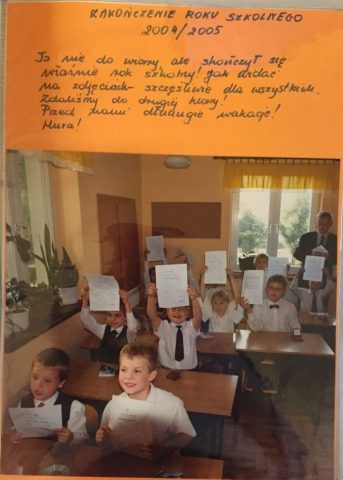 ZAKOŃCZENIE ROKU SZKOLNEGO
2004/2005
To nie do wiary, ale skończył się
właśnie rok szkolny! Jak widać
na zdjęciach - szczęśliwie dla wszystkich.
Zdaliśmy do drugiej klasy!
Przed nami długie wakacje!
Hura!